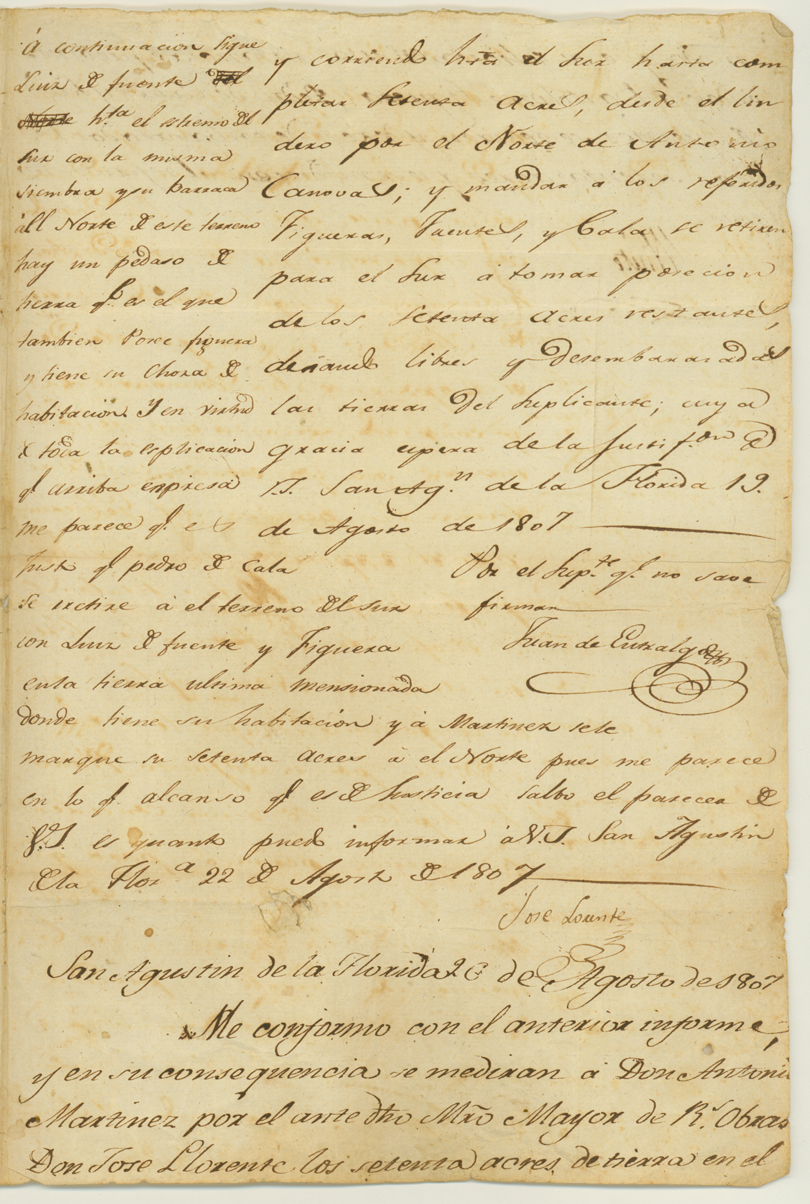 y corriendo hâ el Sur hasta com
pletar Setenta Acres, desde el lin
dero por el Norte de Antonio
Canovas; y mandar á los referidos
Figueras, Fuentes, y Cala se retiren
para el Sur á tomar posecion
de los Setenta Acres restantes,
dexando libres y desembarazadas
las tierras del Suplicante; cuya
gracia espera de la Justif.on de
V.S. San Ag.n de la Florida 19.
de Agosto de 1807
Por el Sup.te q.e no save
firmar
Juan de Entralgo
Á continuacion sigue
Luiz de fuente del
Norte h.ta el stremo del
sur con la misma
siembra y su barraca
á el Norte de este terreno
hay un pedaso de
tierra q.e es el que
tambien Posee figuera
y tiene su Choza de
habitación. Y en virtud
de toda la esplicación
q.e arriba expresa
me parece q.e es
Justo q.e pedro de Cala
se retire á el terreno del sur
con Luiz de fuente y Figuera
en la tierra ultima mensionada
donde tiene su habitación y á Martinez se le
marque su setenta acres á el Norte pues me parece
en lo q.e alcanso q.e es de Justicia salbo el parecer de
V.S. es quanto puedo informar á V.S. San Agustin
de la Flor.a 22 de Agosto de 1807
Jose Lorente
San Agustin de la Florida 26 de Agosto de 1807
Me conformo con el anterior informe,
y en su consequencia se mediran á Don Antonio
Martinez por el ante dho Mrô Mayor de R.s Obras
Don Jose Llorente los setenta acres de tierra en el